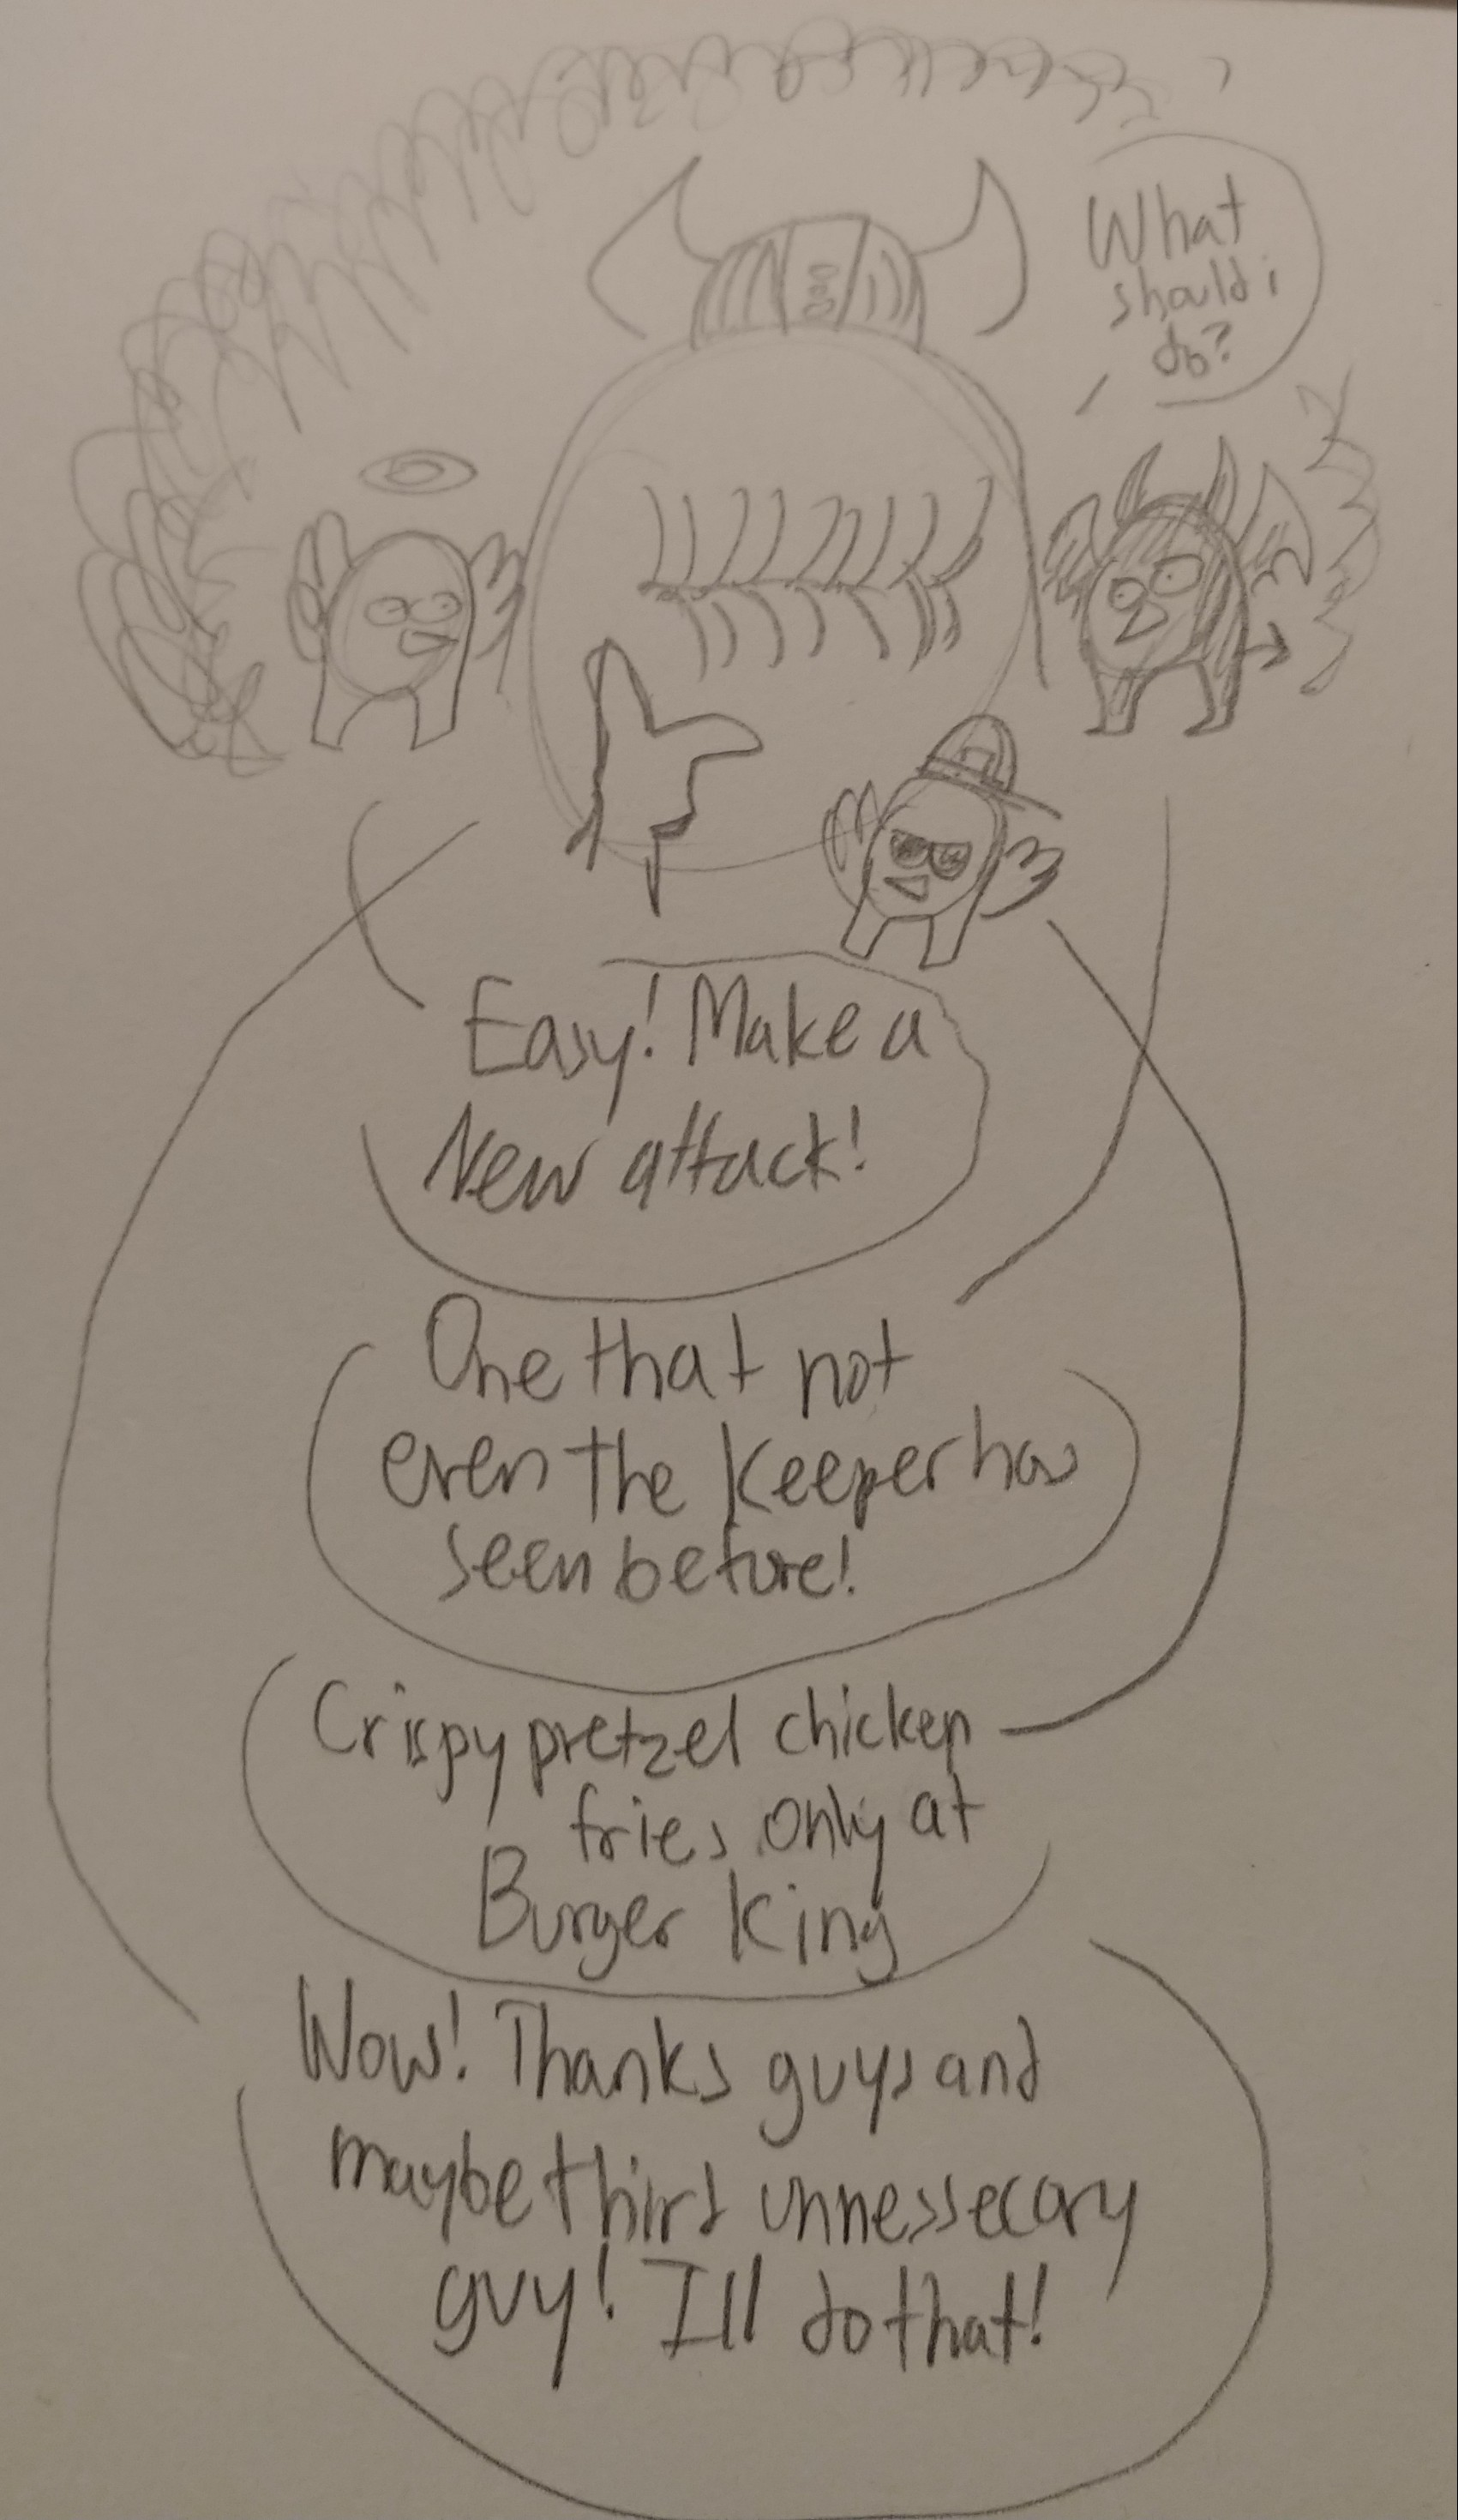 What
should i
do?
Easy! Make a
New attack!
One that not
even the Keeper has
seen before!
Crispy pretzel chicken
fries only at
Burger King
Wow! Thanks guys and
maybe third unnessecary
guy! Ill do that!